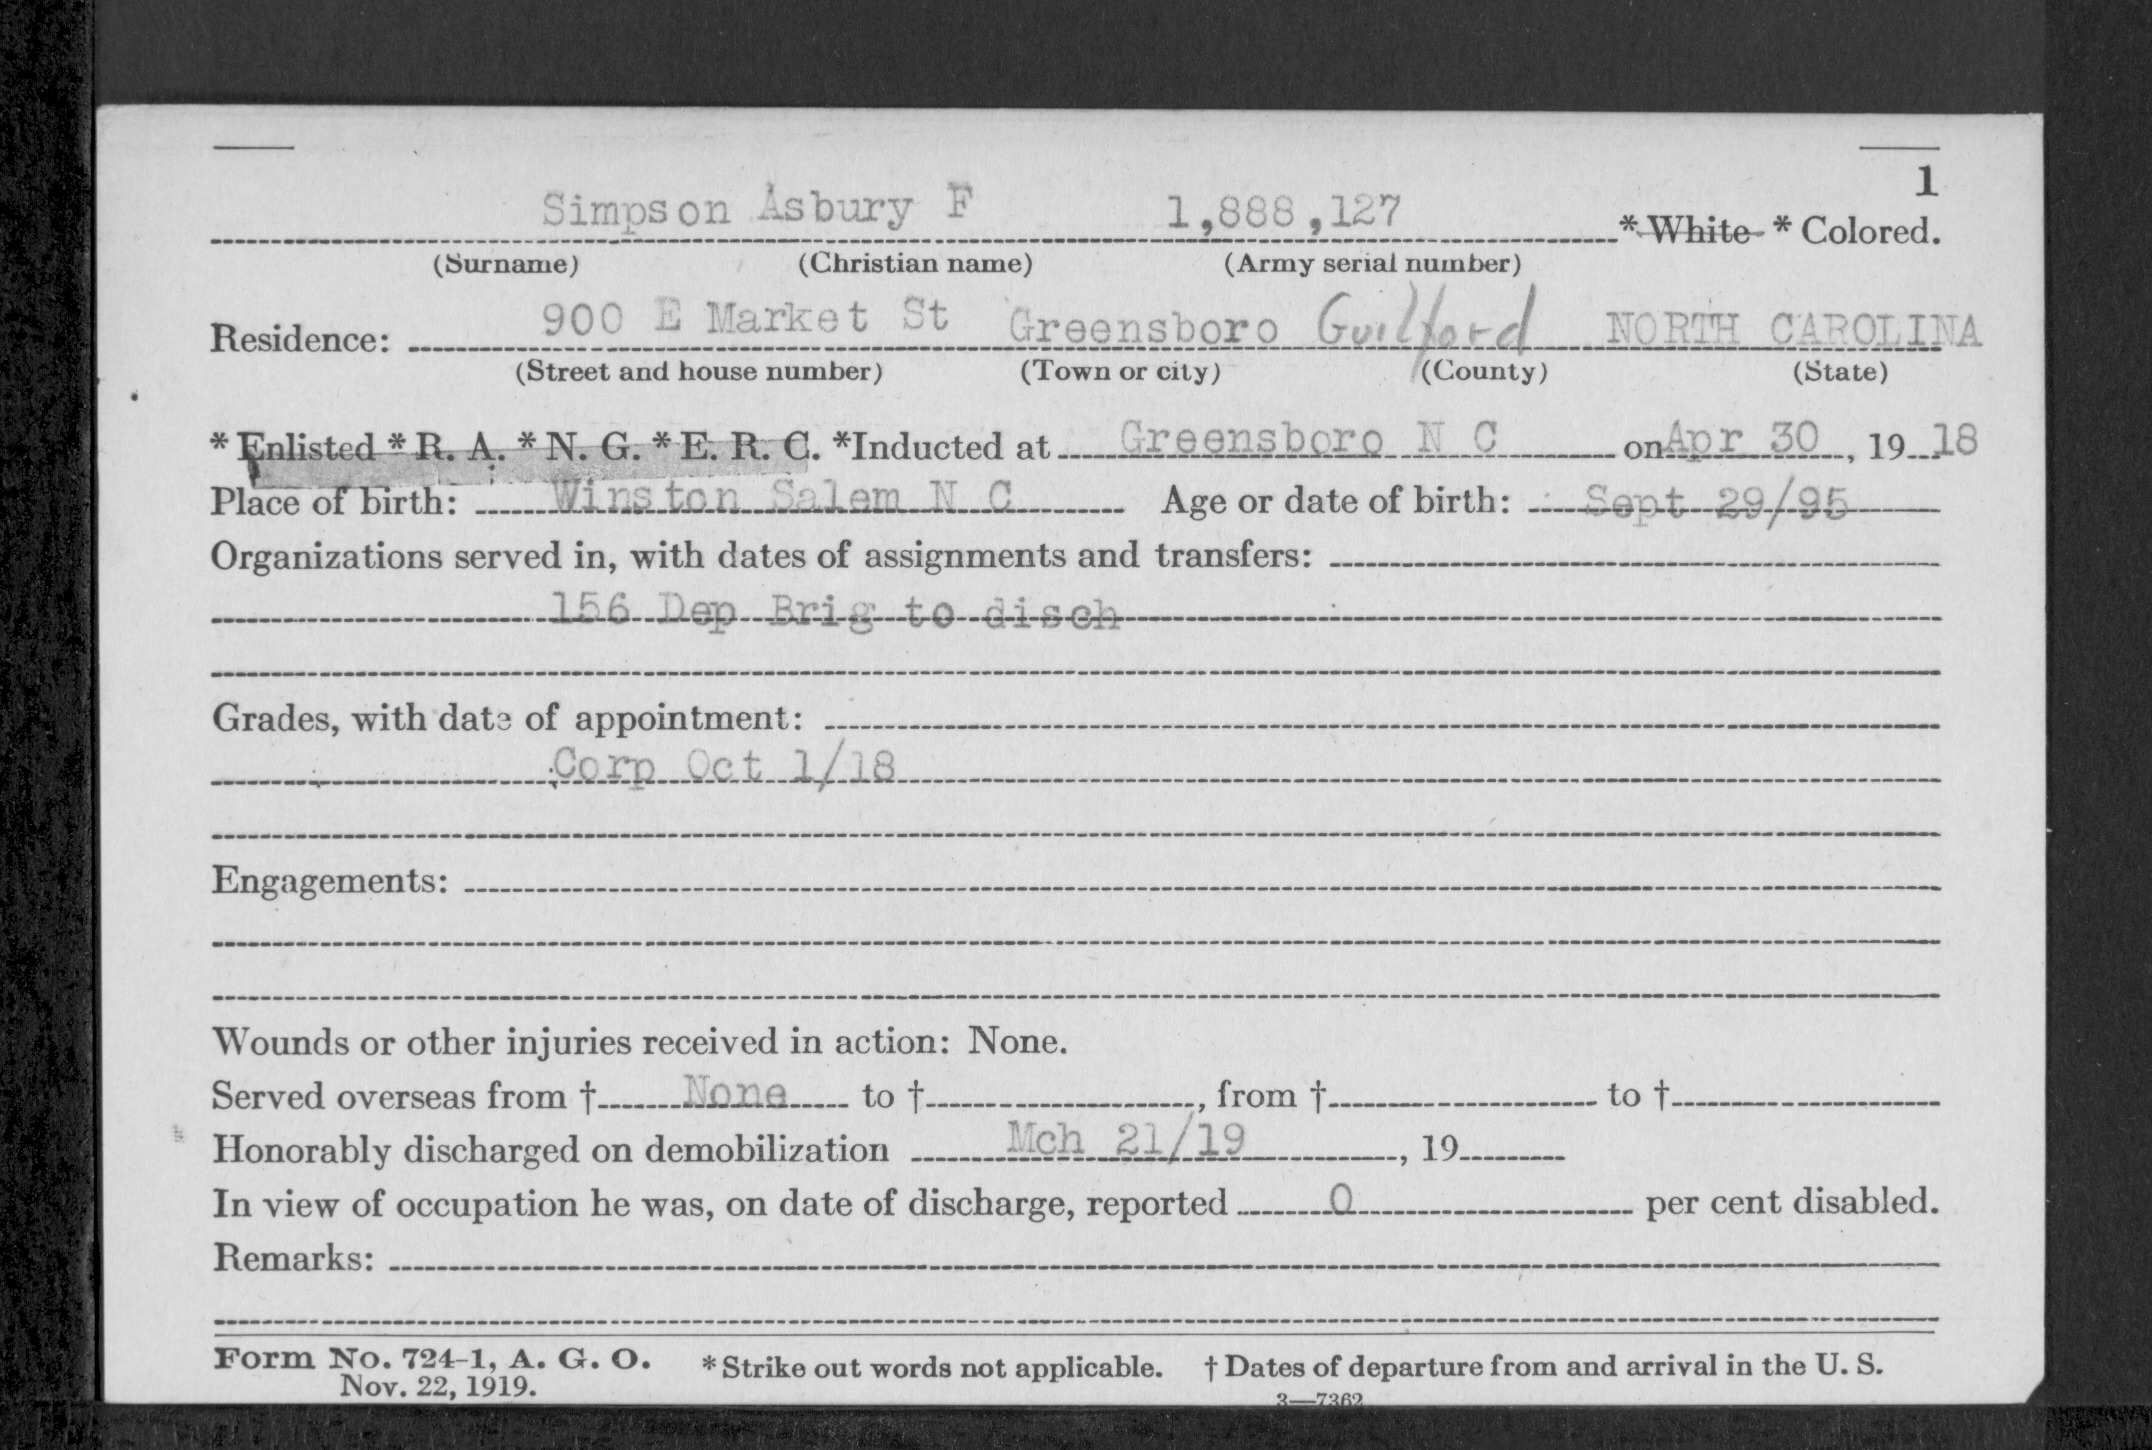 1
Simpson Asbury F 1,888,127 * White * Colored.
(Surname) (Christian name) (Army serial number)
Residence: 900 E Market St Greensboro Guilford NORTH CAROLINA
(Street and house number) (Town or city) (County) (State)
* Enlisted * R. A. * N. G. * E. R. C. *Inducted at Greensboro N C on Apr 30, 19 18
Place of birth: Winston Salem N C Age or date of birth: Sept 29/95
Organizations served in, with dates of assignments and transfers:
156 Dep Brig to disch
Grades, with date of appointment:
Corp Oct 1/18
Engagements:
Wounds or other injuries received in action: None.
Served overseas from † None to †, from † to †
Honorably discharged on demobilization Mch 21/19, 19
In view of occupation he was, on date of discharge, reported 0 per cent disabled.
Remarks:
Form No. 724-1, A. G. O. * Strike out words not applicable. † Dates of departure from and arrival in the U. S.
Nov. 22, 1919.
3—7362